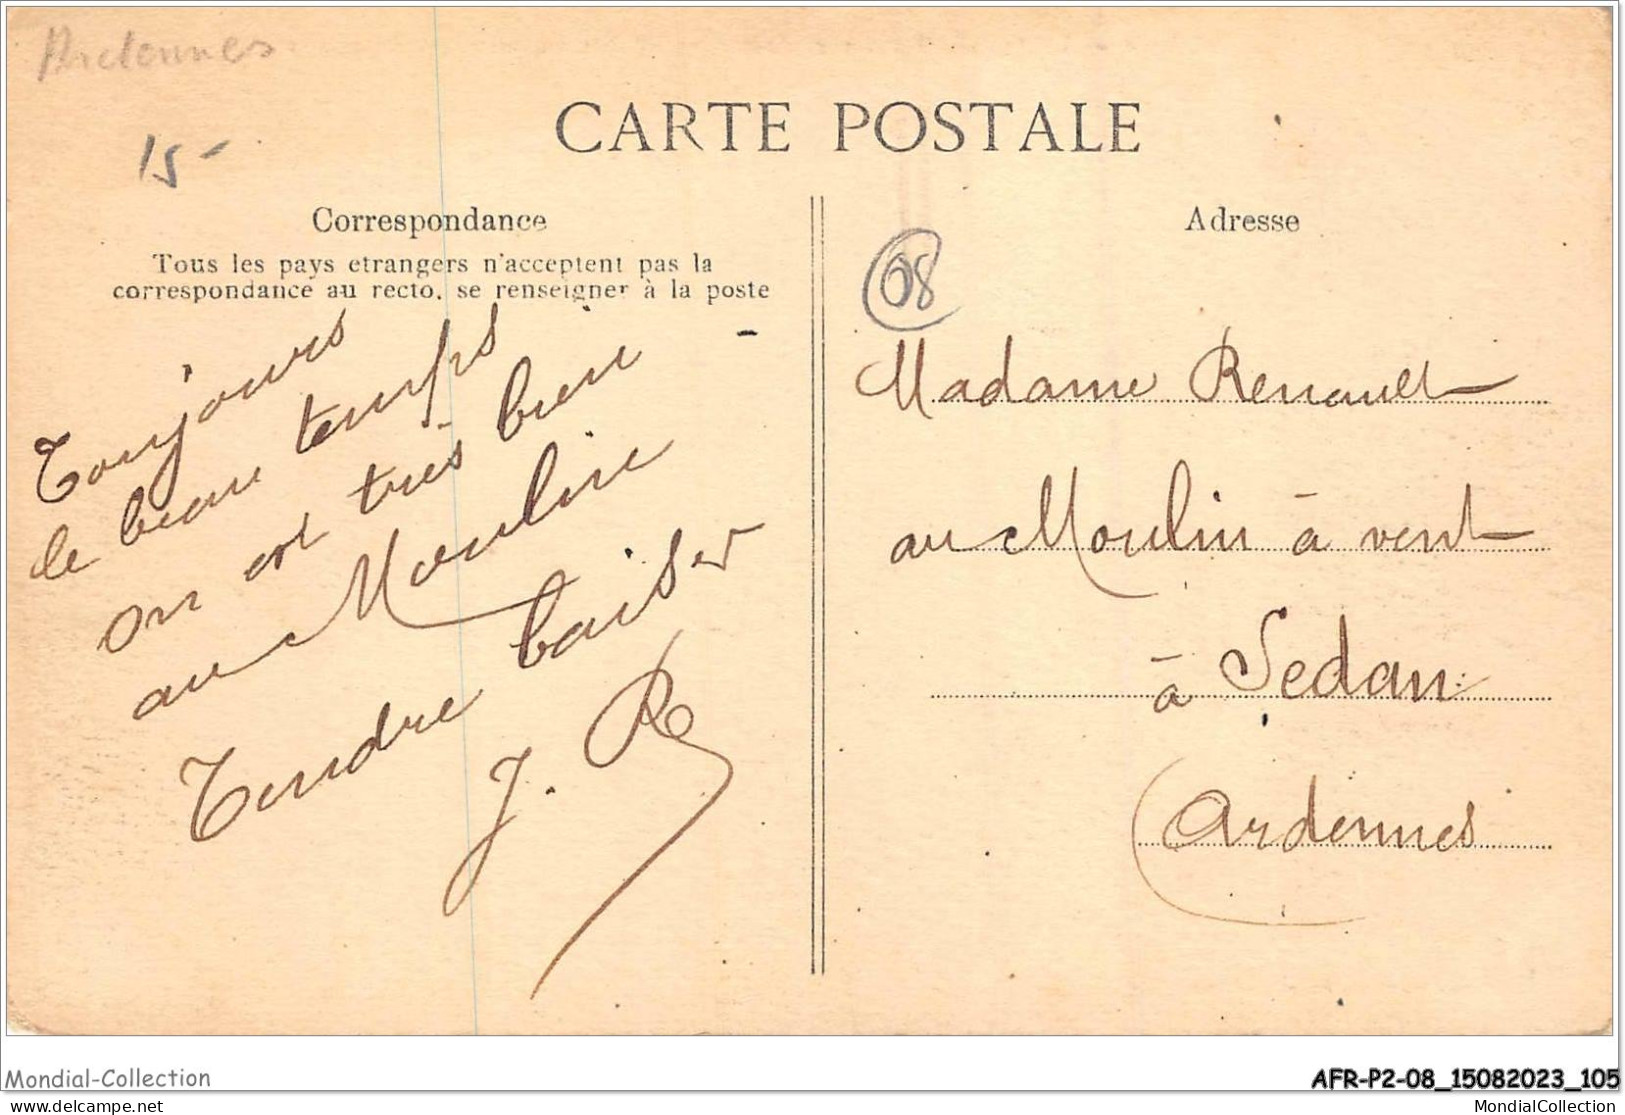 Ardennes
15-
CARTE POSTALE
Correspondance
Tous les pays etrangers n'acceptent pas la
correspondance au recto, se renseigner à la poste
Toujours
le beau temps
on est très bien
au Moulin
Tendre baiser
J. R
Adresse
08
Madame Renault
au Moulin à vent
à Sedan
(Ardennes
Mondial-Collection
AFR-P2-08_15082023_105
www.delcampe.net
MondialCollection